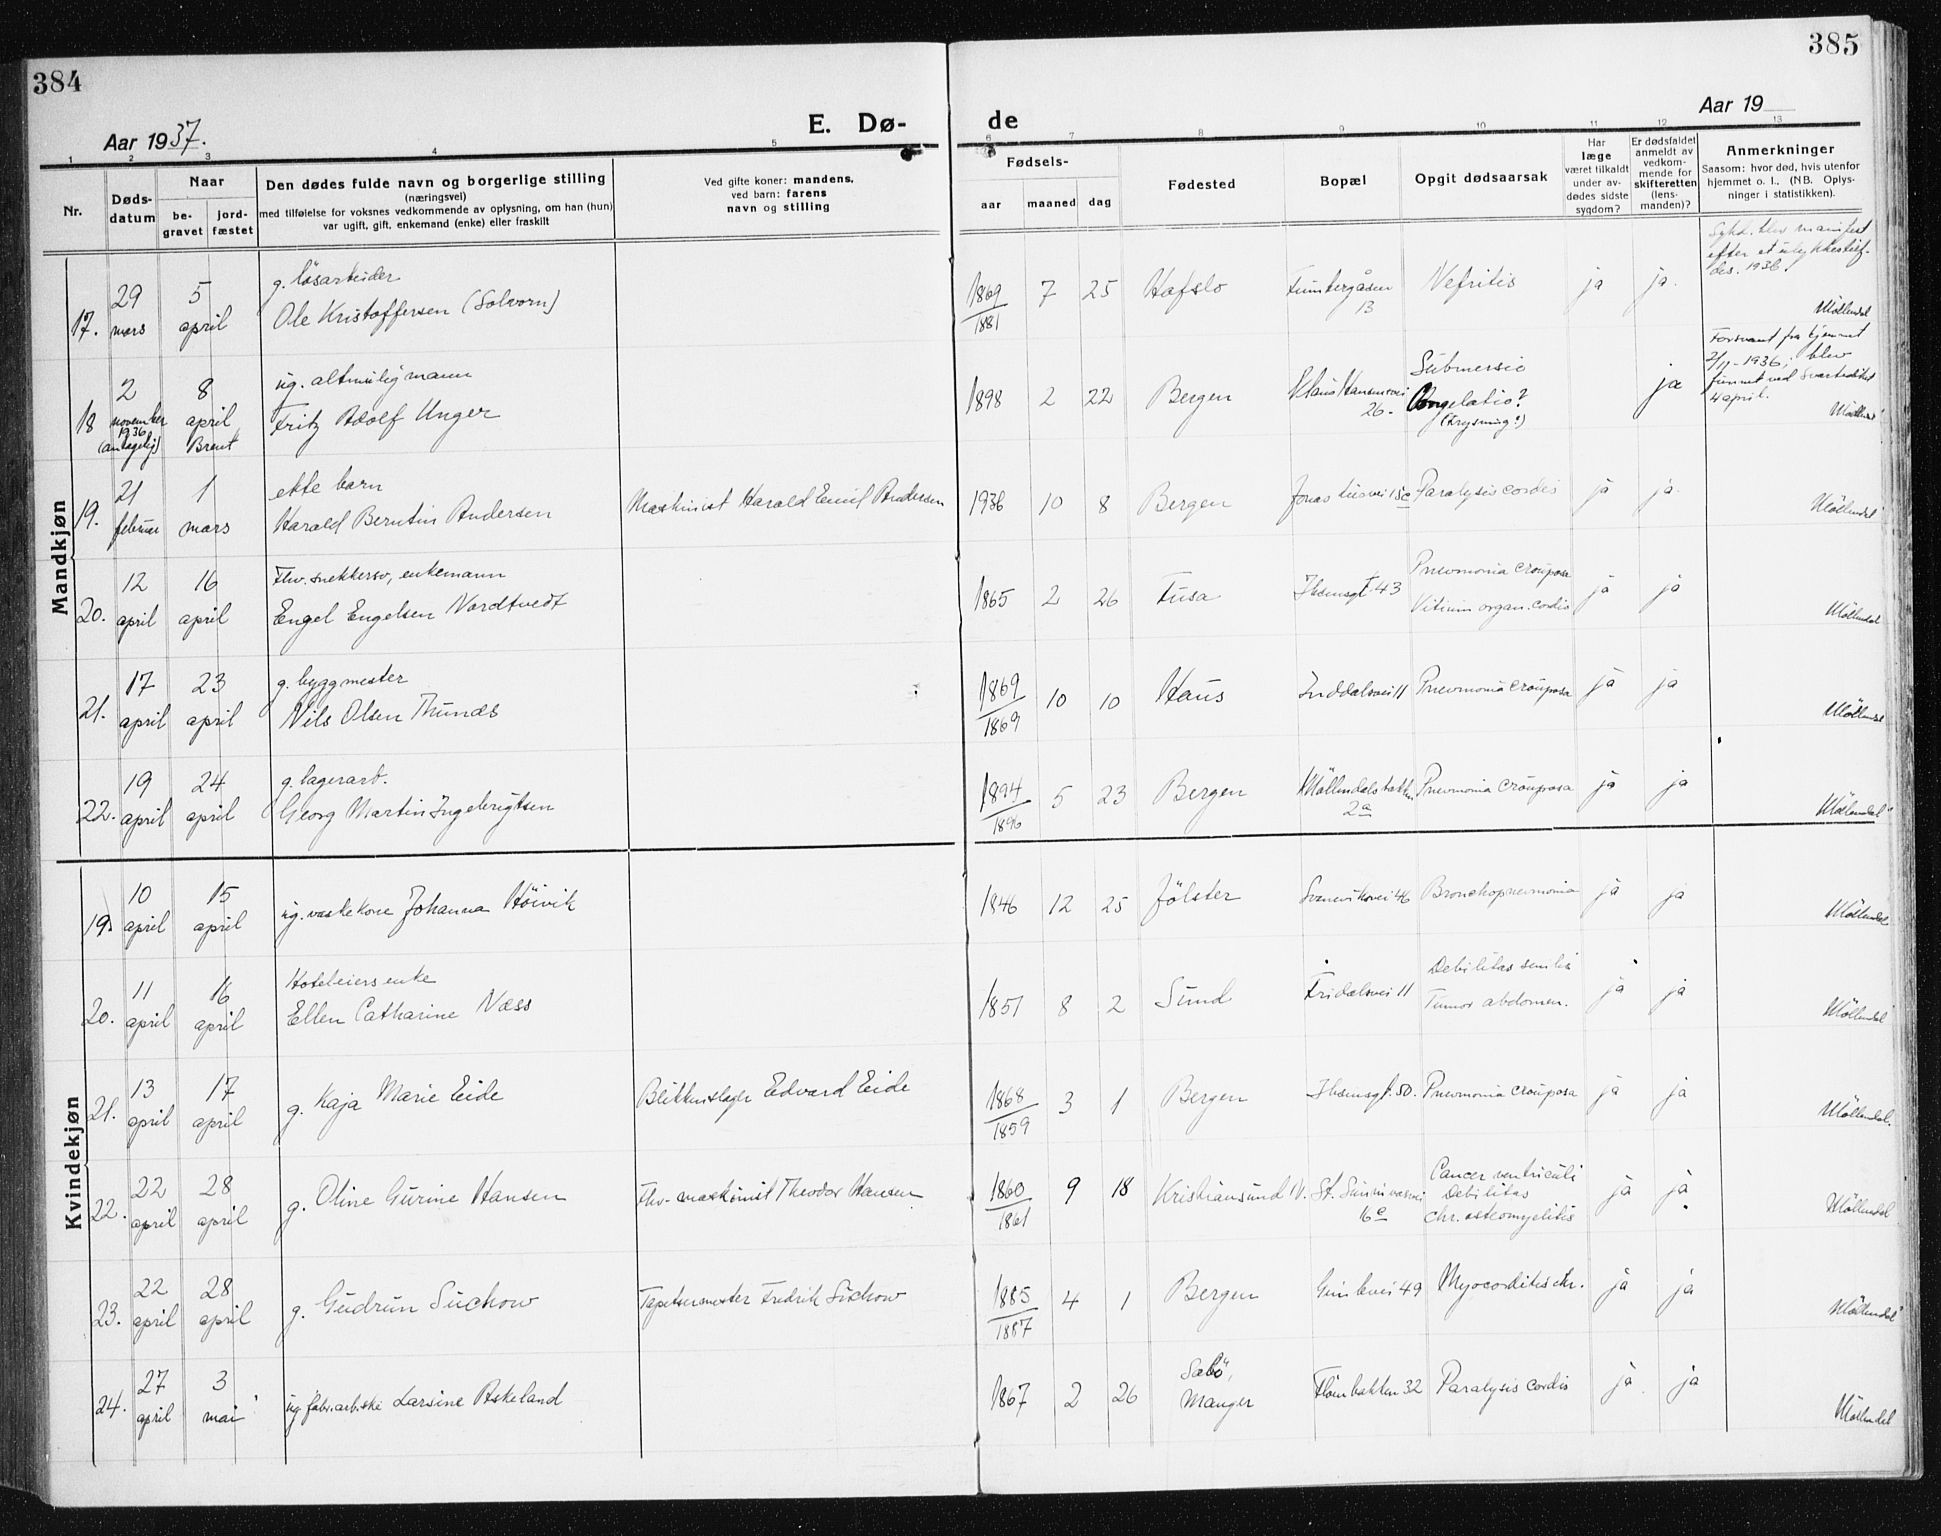 384
385
Aar 1937.
E. Dø-
de
Aar 19
1 2 3 4 5 6 7 8 9 10 11 12 13
Nr.
Døds-
datum
Naar
be-
gravet
jord-
fæstet
Den dødes fulde navn og borgerlige stilling
(næringsvei)
med tilføielse for voksnes vedkommende av oplysning, om han (hun)
var ugift, gift, enkemand (enke) eller fraskilt
Ved gifte koner: mandens,
ved barn: farens
navn og stilling
Fødsels-
aar maaned dag
Fødested
Bopæl
Opgit dødsaarsak
Har
læge
været tilkaldt
under av-
dødes sidste
sygdom?
Er dødsfaldet
anmeldt av
vedkom-
mende for
skifteretten
(lens-
manden)?
Anmerkninger
Saasom: hvor død, hvis utenfor
hjemmet o. l., (NB. Oplys-
ninger i statistikken).
Mandkjøn
17. 29 mars 5 april
g. løsarbeider
Ole Kristoffersen (Solvorn)
1869
1881
7 25 Hafslo
13
Nefritis ja ja.
Sykd. blev manifest
efter et ulykkestilf.
des. 1936.
Möllendal
18 2 november 1936 (antagelig) 8 april Brent
ug. altmuligmann
Fritz Adolf Unger
1898 2 22 Bergen
Klaus Hansensvei
26-
Submersio
Congelatio?
(Frysning?)
ja
Forsvant fra hjemmet
2/11-1936, blev
funnet ved Svartediket
4 april.
Möllendal
19. 21 februar 1 mars
ekte barn
Harald Berntin Andersen
Maskinist Harald Emil Andersen
1936 10 8 Bergen
Jonas Liesvei 15c
Paralysis cordis ja ja.
Möllendal
20. 12 april 16 april
Fhv. snekkersv, enkemann
Engel Engelsen Nordtvedt
1865 2 26 Fusa
Ibsensgt 43
Pneumonia crouposa
Vitium organ. cordis
ja ja
Möllendal
21. 17 april 23 april
g. byggmester
Nils Olsen Thunes
1869
1869
10 10 Haus
Inddalsvei 11
Pneumonia crouposa ja ja
Möllendal
22. 19 april 24 april
g. lagerarb.
Georg Martin Ingebrigtsen
1894
1896
5 23 Bergen
Möllendalsbakken
2a
Pneumonia crouposa ja ja
Möllendal
Kvindekjøn
19. 10 april 15 april
ug. vaskekone Johanna Höivik
1846 12 25 Jölster
Svaneviksvei 46
Bronchopneumonia ja ja
Möllendal
20. 11 april 16 april
Hoteleiers enke
Ellen Catharine Næss
1851 8 2 Sund
Fridalsvei 11
Debilitas senilis
Tumor abdomen.
ja ja
Möllendal
21. 13 april 17 april
g. Kaja Marie Eide
Blikkenslager Edvard Eide
1868
1859
3 1 Bergen
Ibsensgt. 50.
Pneumonia crouposa ja ja
Möllendal.
22. 22 april 28 april
g. Oline Gurine Hansen
Fhv. maskinist Theodor Hansen
1860
1861
9 18 Kristiansund N.
St. Sunnivasvei
16c
Cancer ventriculi
Debilitas
chr. osteomyelitis
ja ja
Möllendal
23. 22 april 28 april
g. Gudrun Suchow
Tapetsermester Fredrik Suchow
1885
1887
4 1 Bergen
Gimlevei 49
Myocorditis chr. ja ja
Möllendal
24. 27 april 3 mai
ug. fabr.arb.ske Larsine Askeland
1867 2 26
Sæbö,
Manger
Flöienbakken 32
Paralysis cordis ja ja
Möllendal